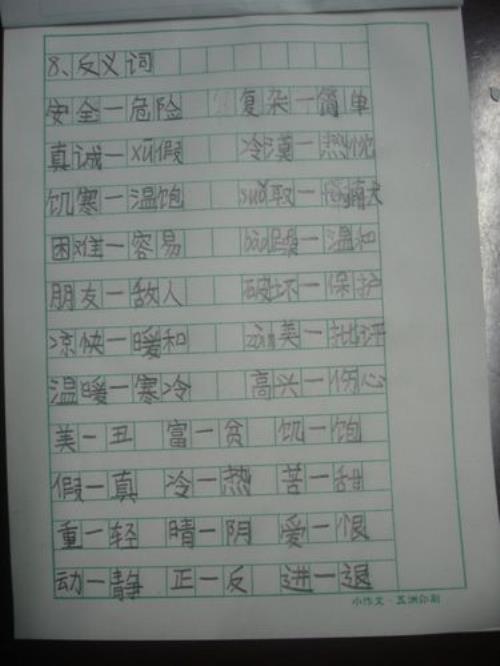 8、反义词
安全一危险 复杂一简单
真诚一xū假 冷漠一热忱
饥寒一温饱 suǒ取一
困难一容易 一温和
朋友一敌人 破坏一保护
凉快一暖和 zàn美一批评
温暖一寒冷 高兴一伤心
美一丑 富一贫 饥一饱
假一真 冷一热 苦一甜
重一轻 晴一阴 爱一恨
动一静 正一反 进一退
小作文·五洲印刷